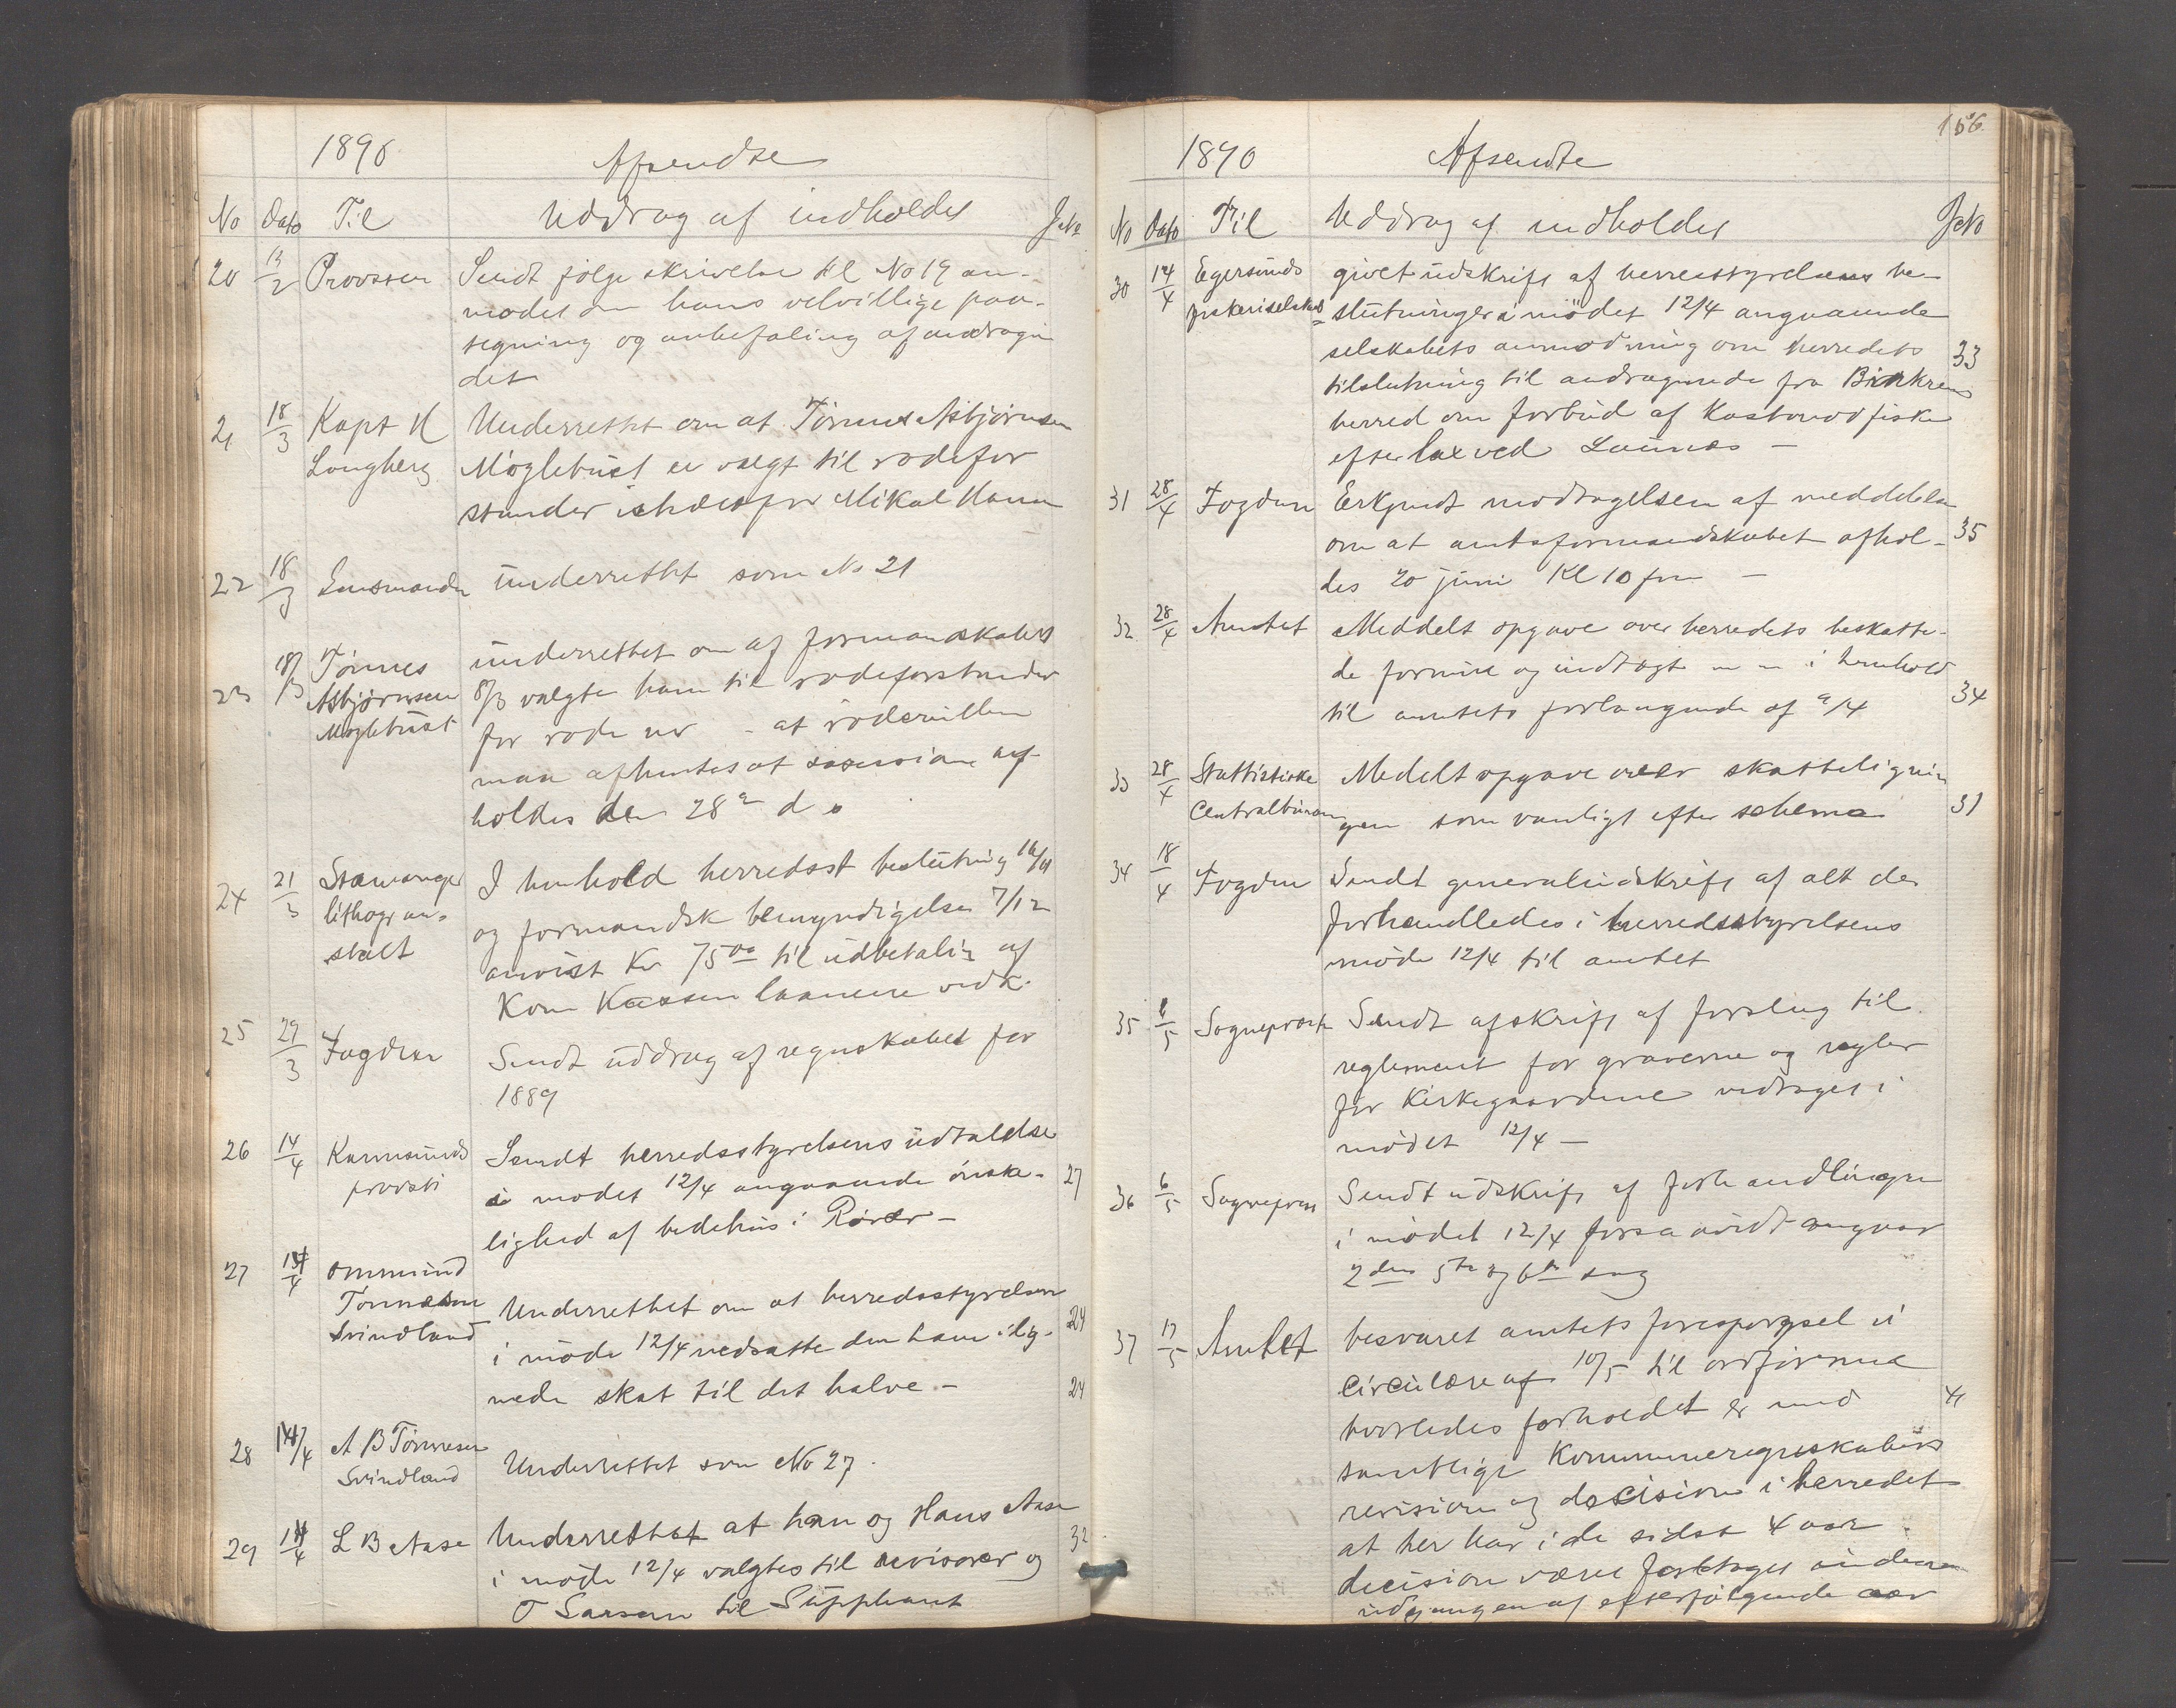 1890 Afsendte
No Dato Til Uddrag af indholdet J No
20 13/2 Provsten Sendt følge skrivelse til No 19 an-
modet om hans velvillige paa-
tegning og anbefaling af andragen
det
21 18/3 Kapt H Undersettet om at Tønnes Asbjørnsen
Longberg Møgletuet er valgt til rodefor
stander istedetfor Mikal
22 18/3 Lensmanden underrettet som No 21
23 18/3 Tønnes underrettet om af formandskabets
Asbjørnsen 8/3 valgte ham til rodeforstander
Mögletuet for rode nr - at roderullen
maa afhentes at session af
holdes den 28de d s
24 21/3 Stavanger I henhold herredsst beslutning 16/11
lithogr an- og formandsk bemyndigelse 7/12
stalt anvist Kr 75 00 til udbetaling af
Kom Kassen laanene vedk.
25 29/3 Fogden Sendt uddrag af regnskabet for
1889
26 14/4 Karmsunds Sendt herredsstyrelsens udtalelse
provsti i mødet 12/4 angaaende ønske- 27
lighed af bedehus i Røvær -
27 14/4 Ommund
Tønnesen Underrettet om at herredsstyrelsen
Svindland i møde 12/4 nedsatte den ham ilig- 24
nede skat til det halve - 24
28 14/4 A B Tönnesen
Svindland Underrettet som No 27.
29 14/4 L B Aase Underrettet at han og Hans Aase 32
i møde 12/4 valgtes til revisorer og
O Larsen til Suppleant
156
1890 Afsendte
No Dato Til Uddrag af indholdet J No
30 14/4 Egersunds givet udskrift af herredsstyrelsens be
fiskeriselskab slutninger i mödet 12/4 angaaende
selskabets anmodning om herredets 33
tilslutning til andragende fra Birkrem
herred om forbud af Kastenodfiske
efter lax ved Launes -
31 28/4 Fogden Erkjendt modtagelsen af meddelelse
om at amtsformandskabet afhol- 35
des 20 juni Kl 10 fm -
32 28/4 Amtet Meddelt opgave over herredets beskatte-
de formue og indtægt m m i henhold
til amtets forlangende af 9/4 34
33 28/4 Stattistiske Medelt opgave over skatteligning
Centralbureau gen som vanligt efter schema 31
34 18/4 Fogden Sendt generaludskrift af alt der
forhandledes i herredsstyrelsens
møde 12/4 til amtet
35 6/5 Sognepræst Sendt afskrift af forslag til
reglement for graverne og regler
for Kirkegaardene vedtaget i
mødet 12/4 -
36 6/5 Sognepræst Sendt udskrift af forhandlingen
i mødet 12/4 forsaavidt angaar
2den 5te og 6te sag
37 17/5 Amtet besvaret amtets forespørgsel i
Circulære af 10/5 til ordførerne
hvorledes forholdet er med 41
samtlige Kommuneregnskabers
revision og decision i herredet
at her har i de sidst 4 aar
decision været foretaget inden
udgangen af efterfølgende aar